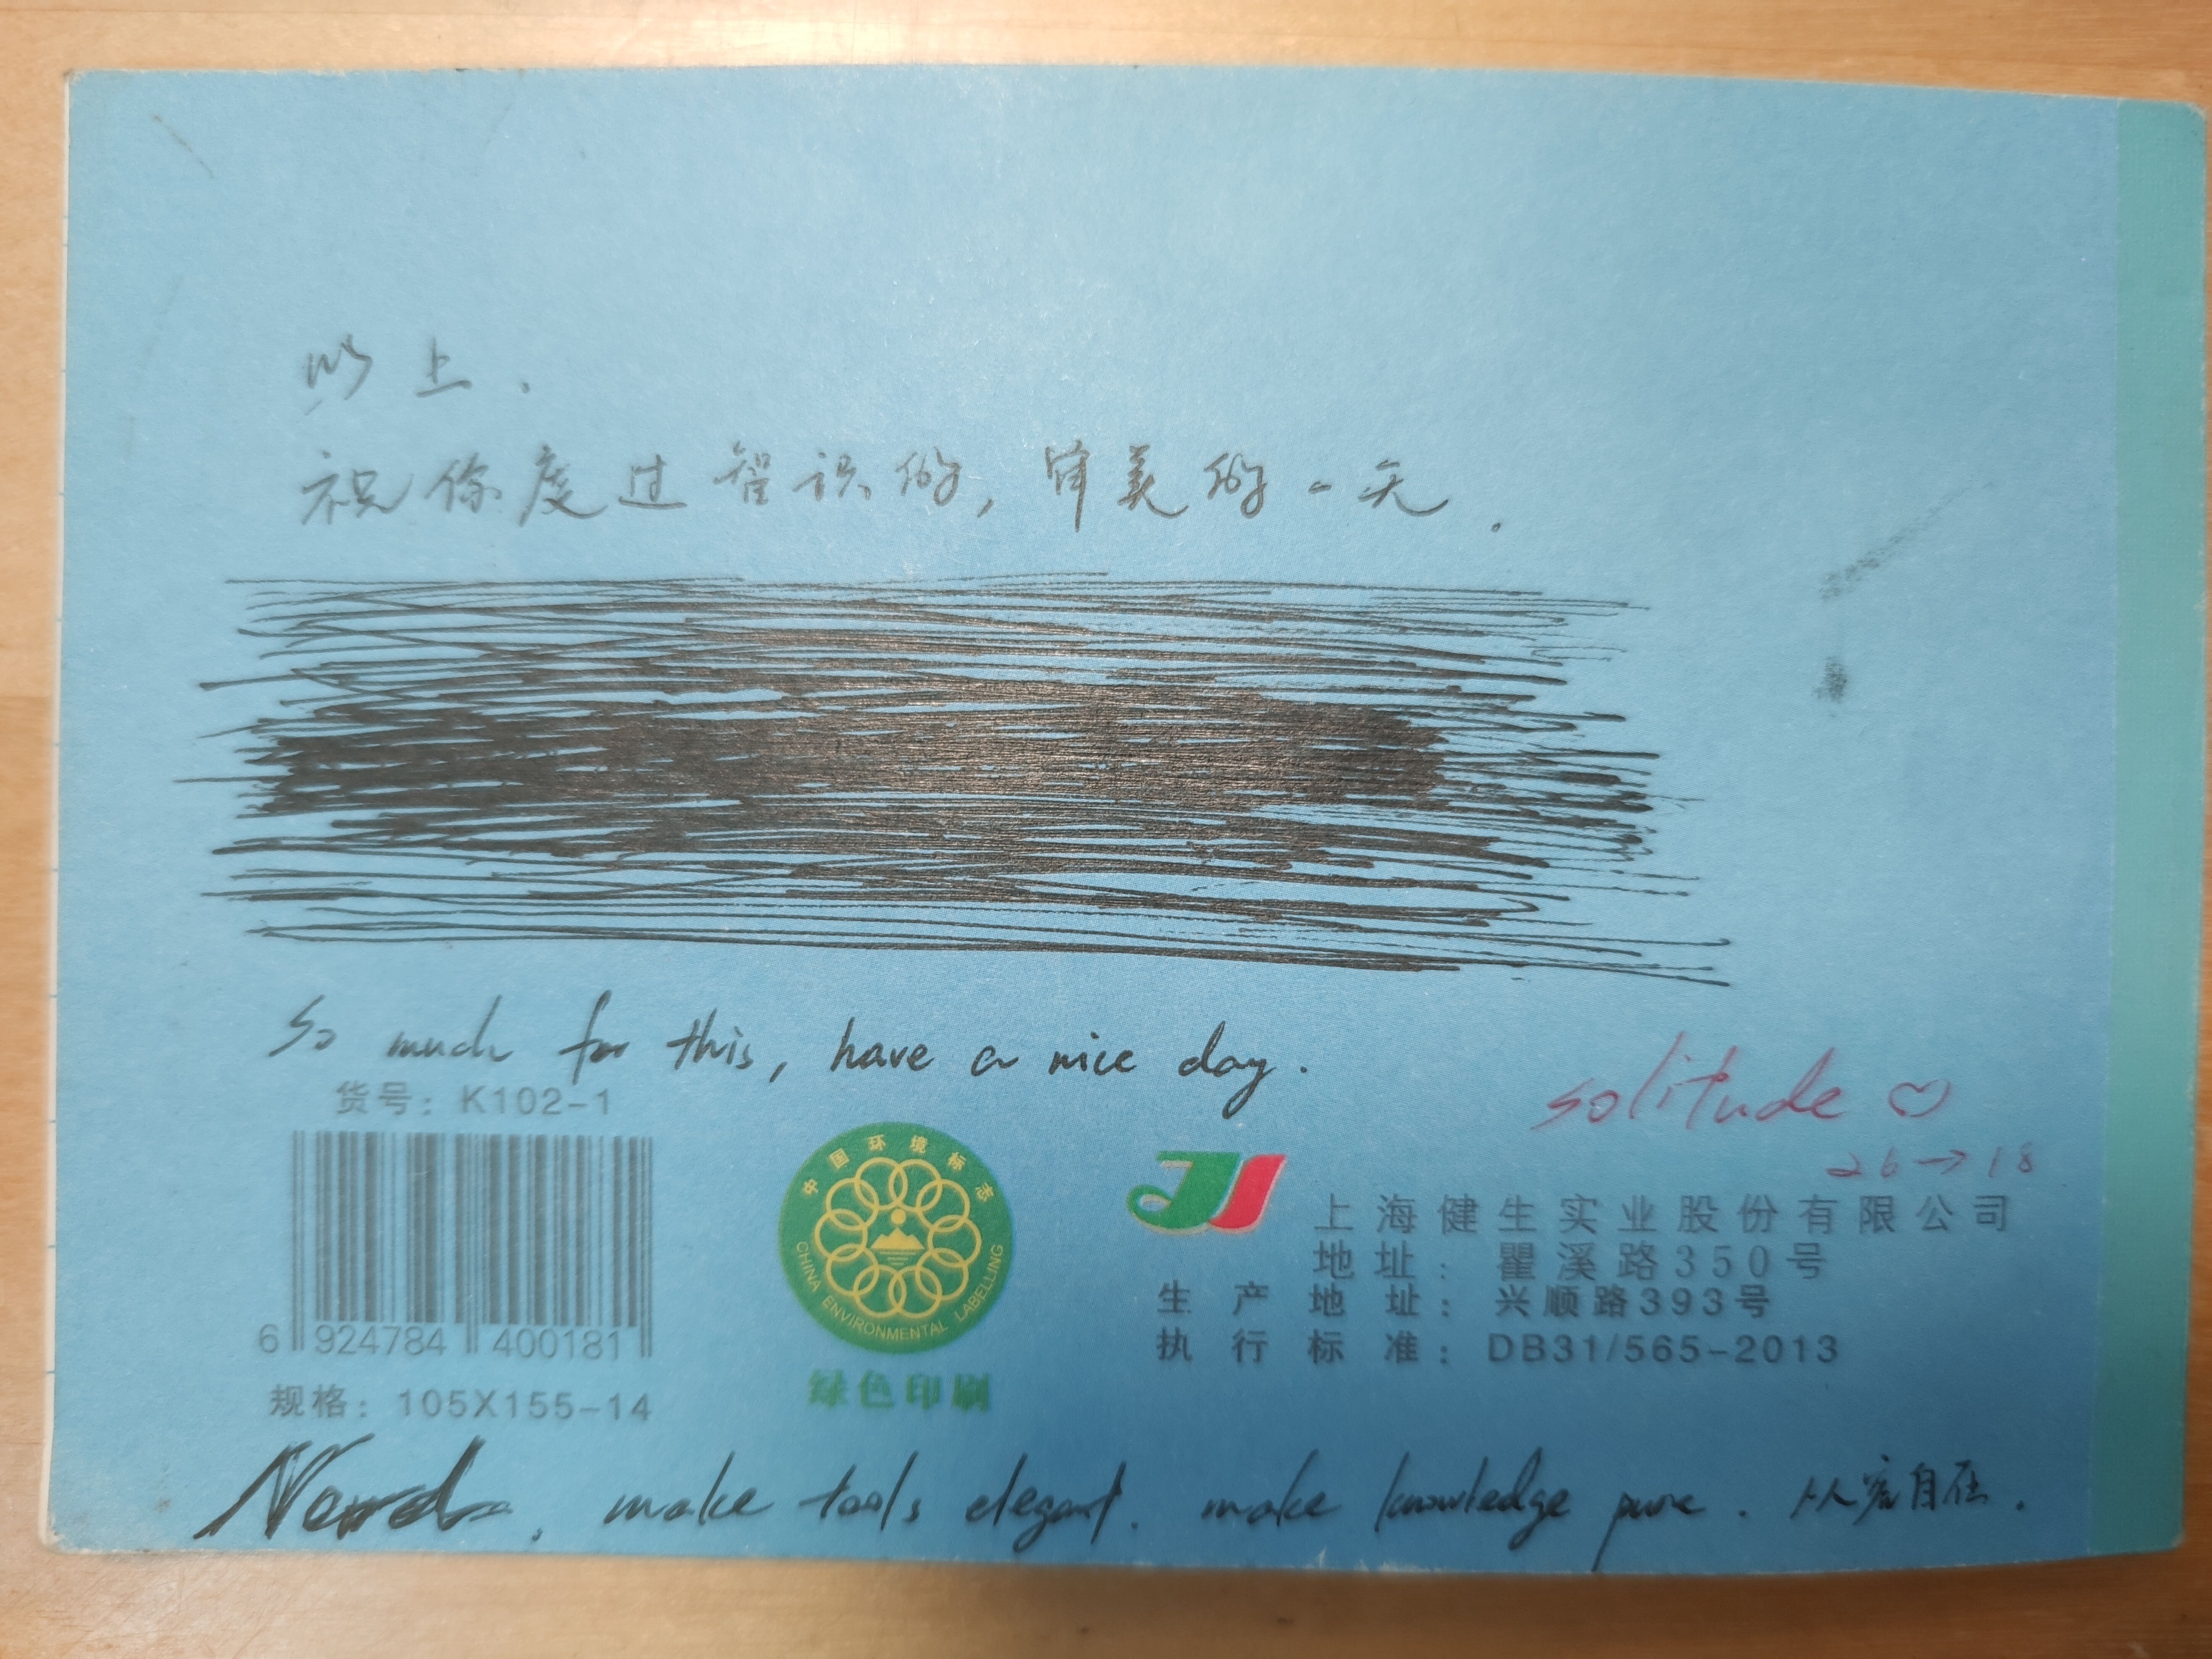 以上.
祝你度过智识的,审美的一天.
So much for this, have a nice day.
solitude ♡
26→18
货号: K102-1
6 924784 400181
规格: 105X155-14
中国环境标志
CHINA ENVIRONMENTAL LABELLING
绿色印刷
上海健生实业股份有限公司
地址: 瞿溪路350号
生产地址: 兴顺路393号
执行标准: DB31/565-2013
make tools elegant. make knowledge pure. 从容自在.